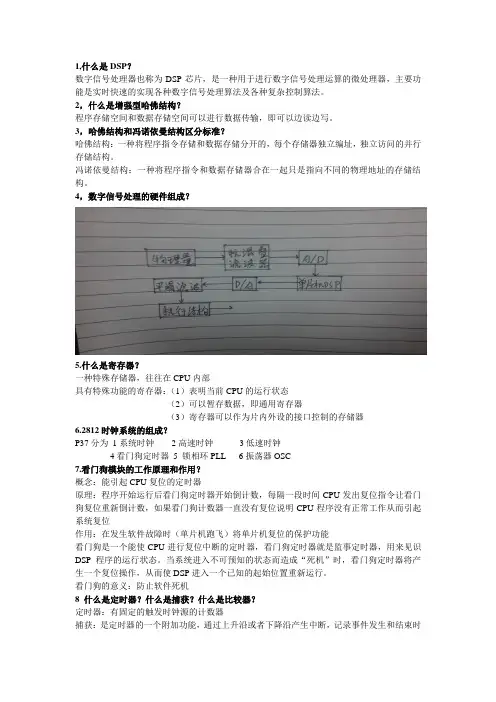 1.什么是DSP？
数字信号处理器也称为DSP芯片，是一种用于进行数字信号处理运算的微处理器，主要功
能是实时快速的实现各种数字信号处理算法及各种复杂控制算法。
2，什么是增强型哈佛结构？
程序存储空间和数据存储空间可以进行数据传输，即可以边读边写。
3，哈佛结构和冯诺依曼结构区分标准？
哈佛结构：一种将程序指令存储和数据存储分开的，每个存储器独立编址，独立访问的并行
存储结构。
冯诺依曼结构：一种将程序指令和数据存储器合在一起只是指向不同的物理地址的存储结
构。
4，数字信号处理的硬件组成？
物理量 抗混叠滤波器 A/D
平滑滤波 D/A 单片机DSP
执行结构
5.什么是寄存器？
一种特殊存储器，往往在CPU内部
具有特殊功能的寄存器：（1）表明当前CPU的运行状态
（2）可以暂存数据，即通用寄存器
（3）寄存器可以作为片内外设的接口控制的存储器
6.2812时钟系统的组成？
P37分为 1系统时钟 2高速时钟 3低速时钟
4看门狗定时器 5 锁相环PLL 6振荡器OSC
7.看门狗模块的工作原理和作用？
概念：能引起CPU复位的定时器
原理：程序开始运行后看门狗定时器开始倒计数，每隔一段时间CPU发出复位指令让看门
狗复位重新倒计数，如果看门狗计数器一直没有复位说明CPU程序没有正常工作从而引起
系统复位
作用：在发生软件故障时（单片机跑飞）将单片机复位的保护功能
看门狗是一个能使CPU进行复位中断的定时器，看门狗定时器就是监事定时器，用来见识
DSP 程序的运行状态。当系统进入不可预知的状态而造成“死机”时，看门狗定时器将产
生一个复位操作，从而使DSP进入一个已知的起始位置重新运行。
看门狗的意义：防止软件死机
8 什么是定时器？什么是捕获？什么是比较器？
定时器：有固定的触发时钟源的计数器
捕获：是定时器的一个附加功能，通过上升沿或者下降沿产生中断，记录事件发生和结束时